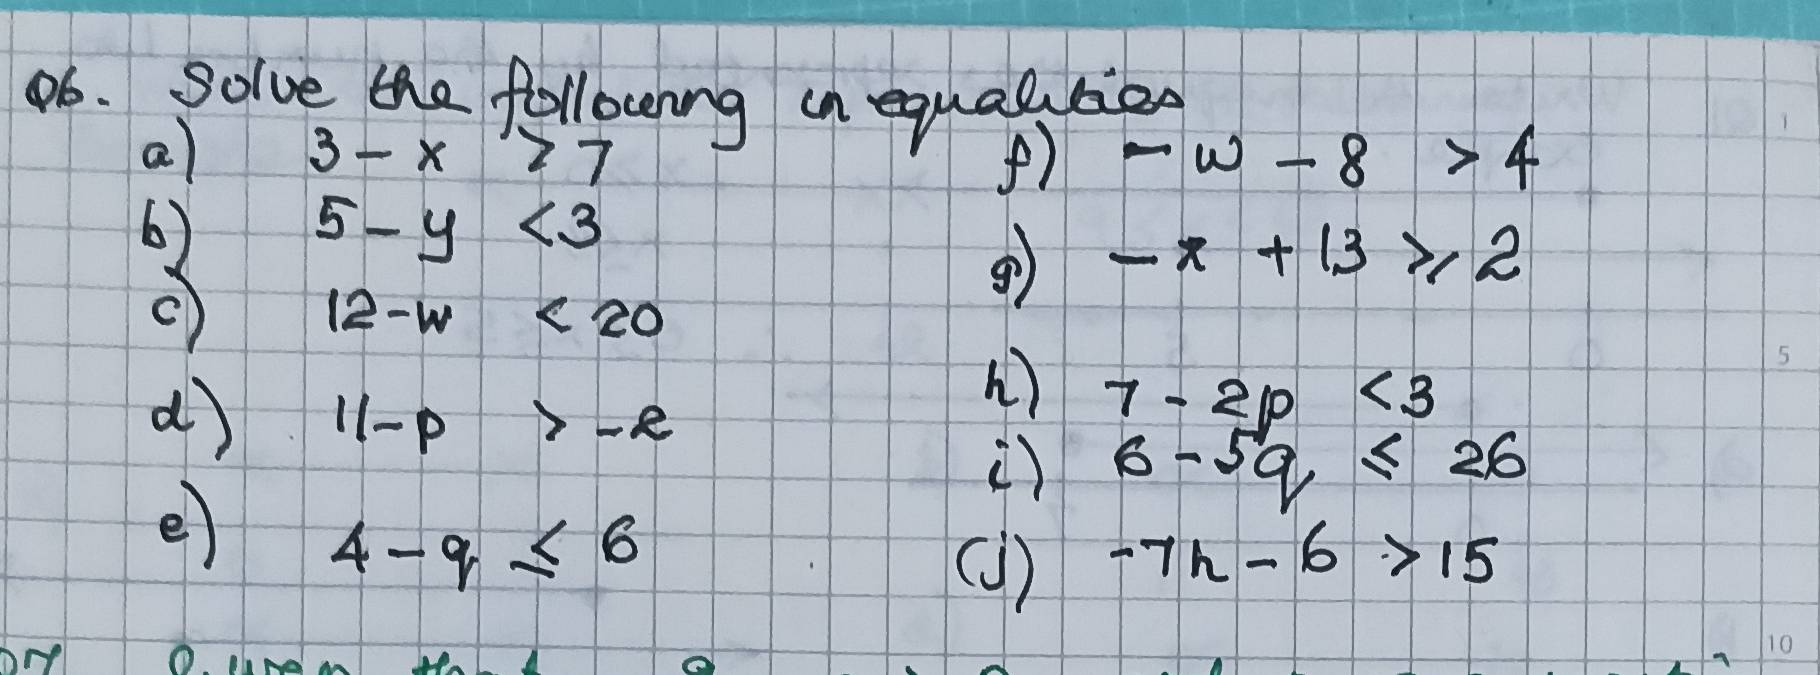 Q6. Solve the following inequalities
a) 3 - x > 7
b) 5 - y < 3
c) 12 - w < 20
d) 11 - p > -2
e) 4 - q ≤ 6
f) - w - 8 > 4
g) - x + 13 ≥ 2
h) 7 - 2p < 3
i) 6 - 5q ≤ 26
(j) -7h - 6 > 15
Q7 Given that
1
5
10